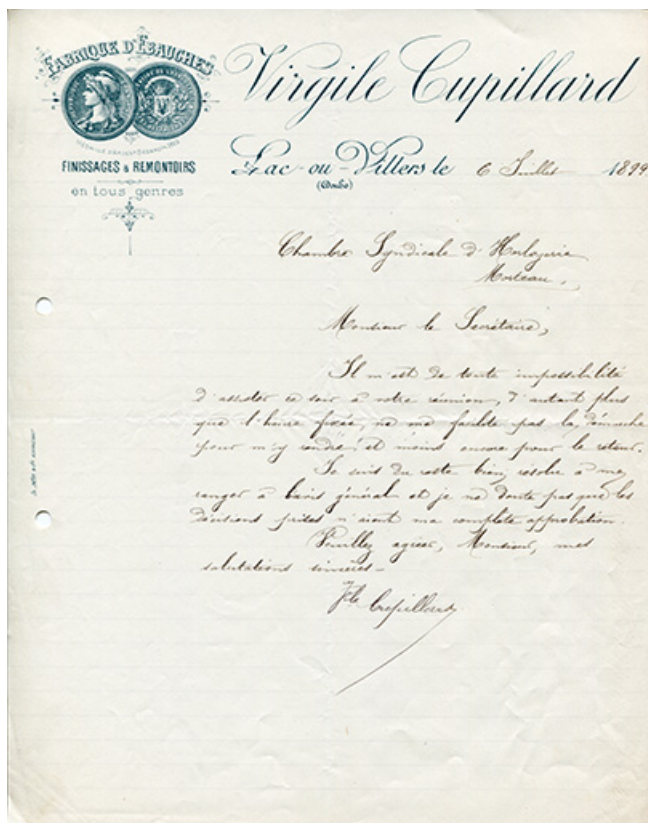 FABRIQUE D'ÉBAUCHES
FINISSAGES & REMONTOIRS
en tous genres
Virgile Cupillard
Lac-ou-Villers le 6 Juillet 1899
(Doubs)
Chambre Syndicale d'Horlogerie
Morteau.
Monsieur le Secrétaire,
Il m'est de toute impossibilité
d'assister ce soir à votre réunion, d'autant plus
que l'heure fixée, ne me facilite pas la démarche
pour m'y rendre et moins encore pour le retour.
Je suis du reste bien résolu à me
ranger à l'avis général et je ne doute pas que les
décisions prises n'aient ma complète approbation.
Veuillez agréer, Monsieur, mes
salutations sincères -
Cupillard